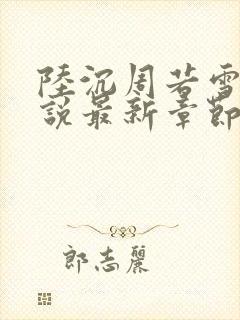 陸沉周若雪
說最新章節
郎志麗